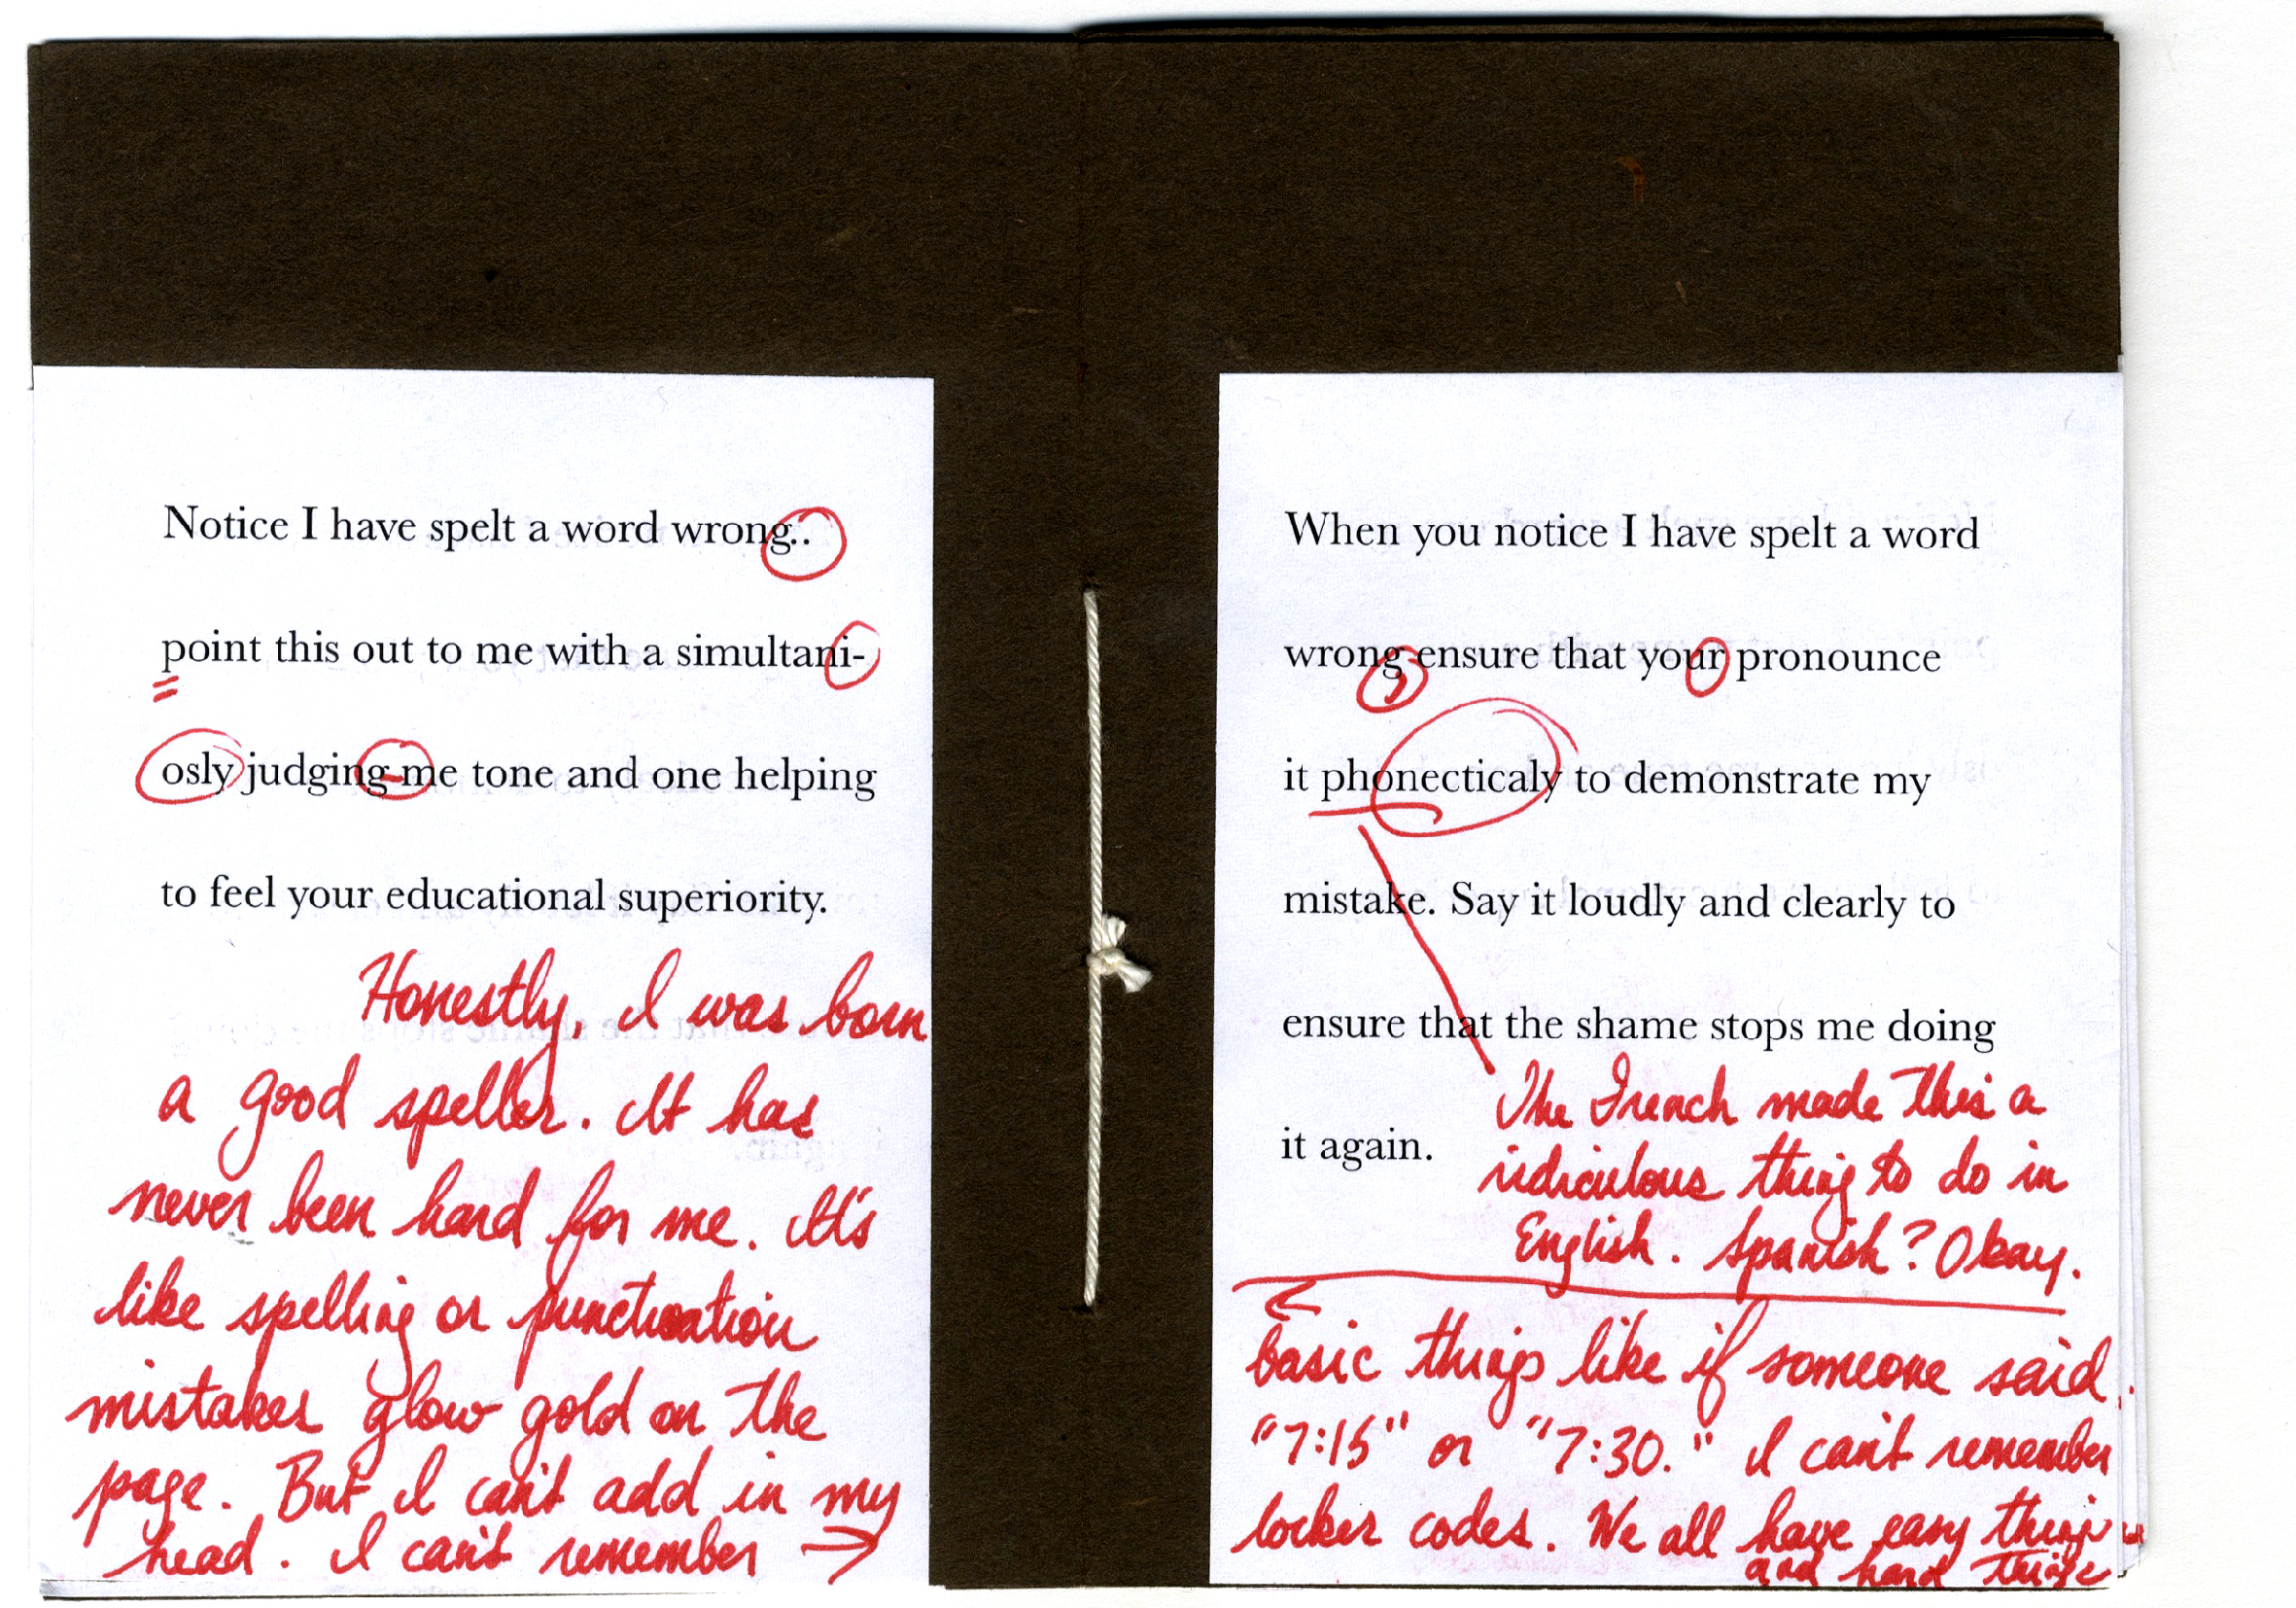 Notice I have spelt a word wrong..
point this out to me with a simultani-
osly judging-me tone and one helping
to feel your educational superiority.
Honestly, I was born
a good speller. It has
never been hard for me. It's
like spelling or punctuation
mistakes glow gold on the
page. But I can't add in my
head. I can't remember →
When you notice I have spelt a word
wrong, ensure that your pronounce
it phonecticaly to demonstrate my
mistake. Say it loudly and clearly to
ensure that the shame stops me doing
it again.
The French made this a
ridiculous thing to do in
English. Spanish? Okay.
basic things like if someone said
"7:15" or "7:30." I can't remember
locker codes. We all have easy things
and hard things